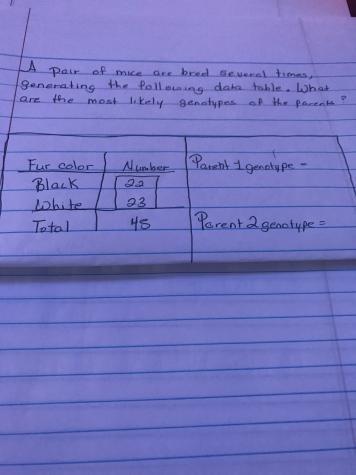 A pair of mice are bred several times,
generating the following data table. What
are the most likely genotypes of the parents?
Fur color Number Parent 1 genotype =
Black 22
White 23
Total 45 Parent 2 genotype =